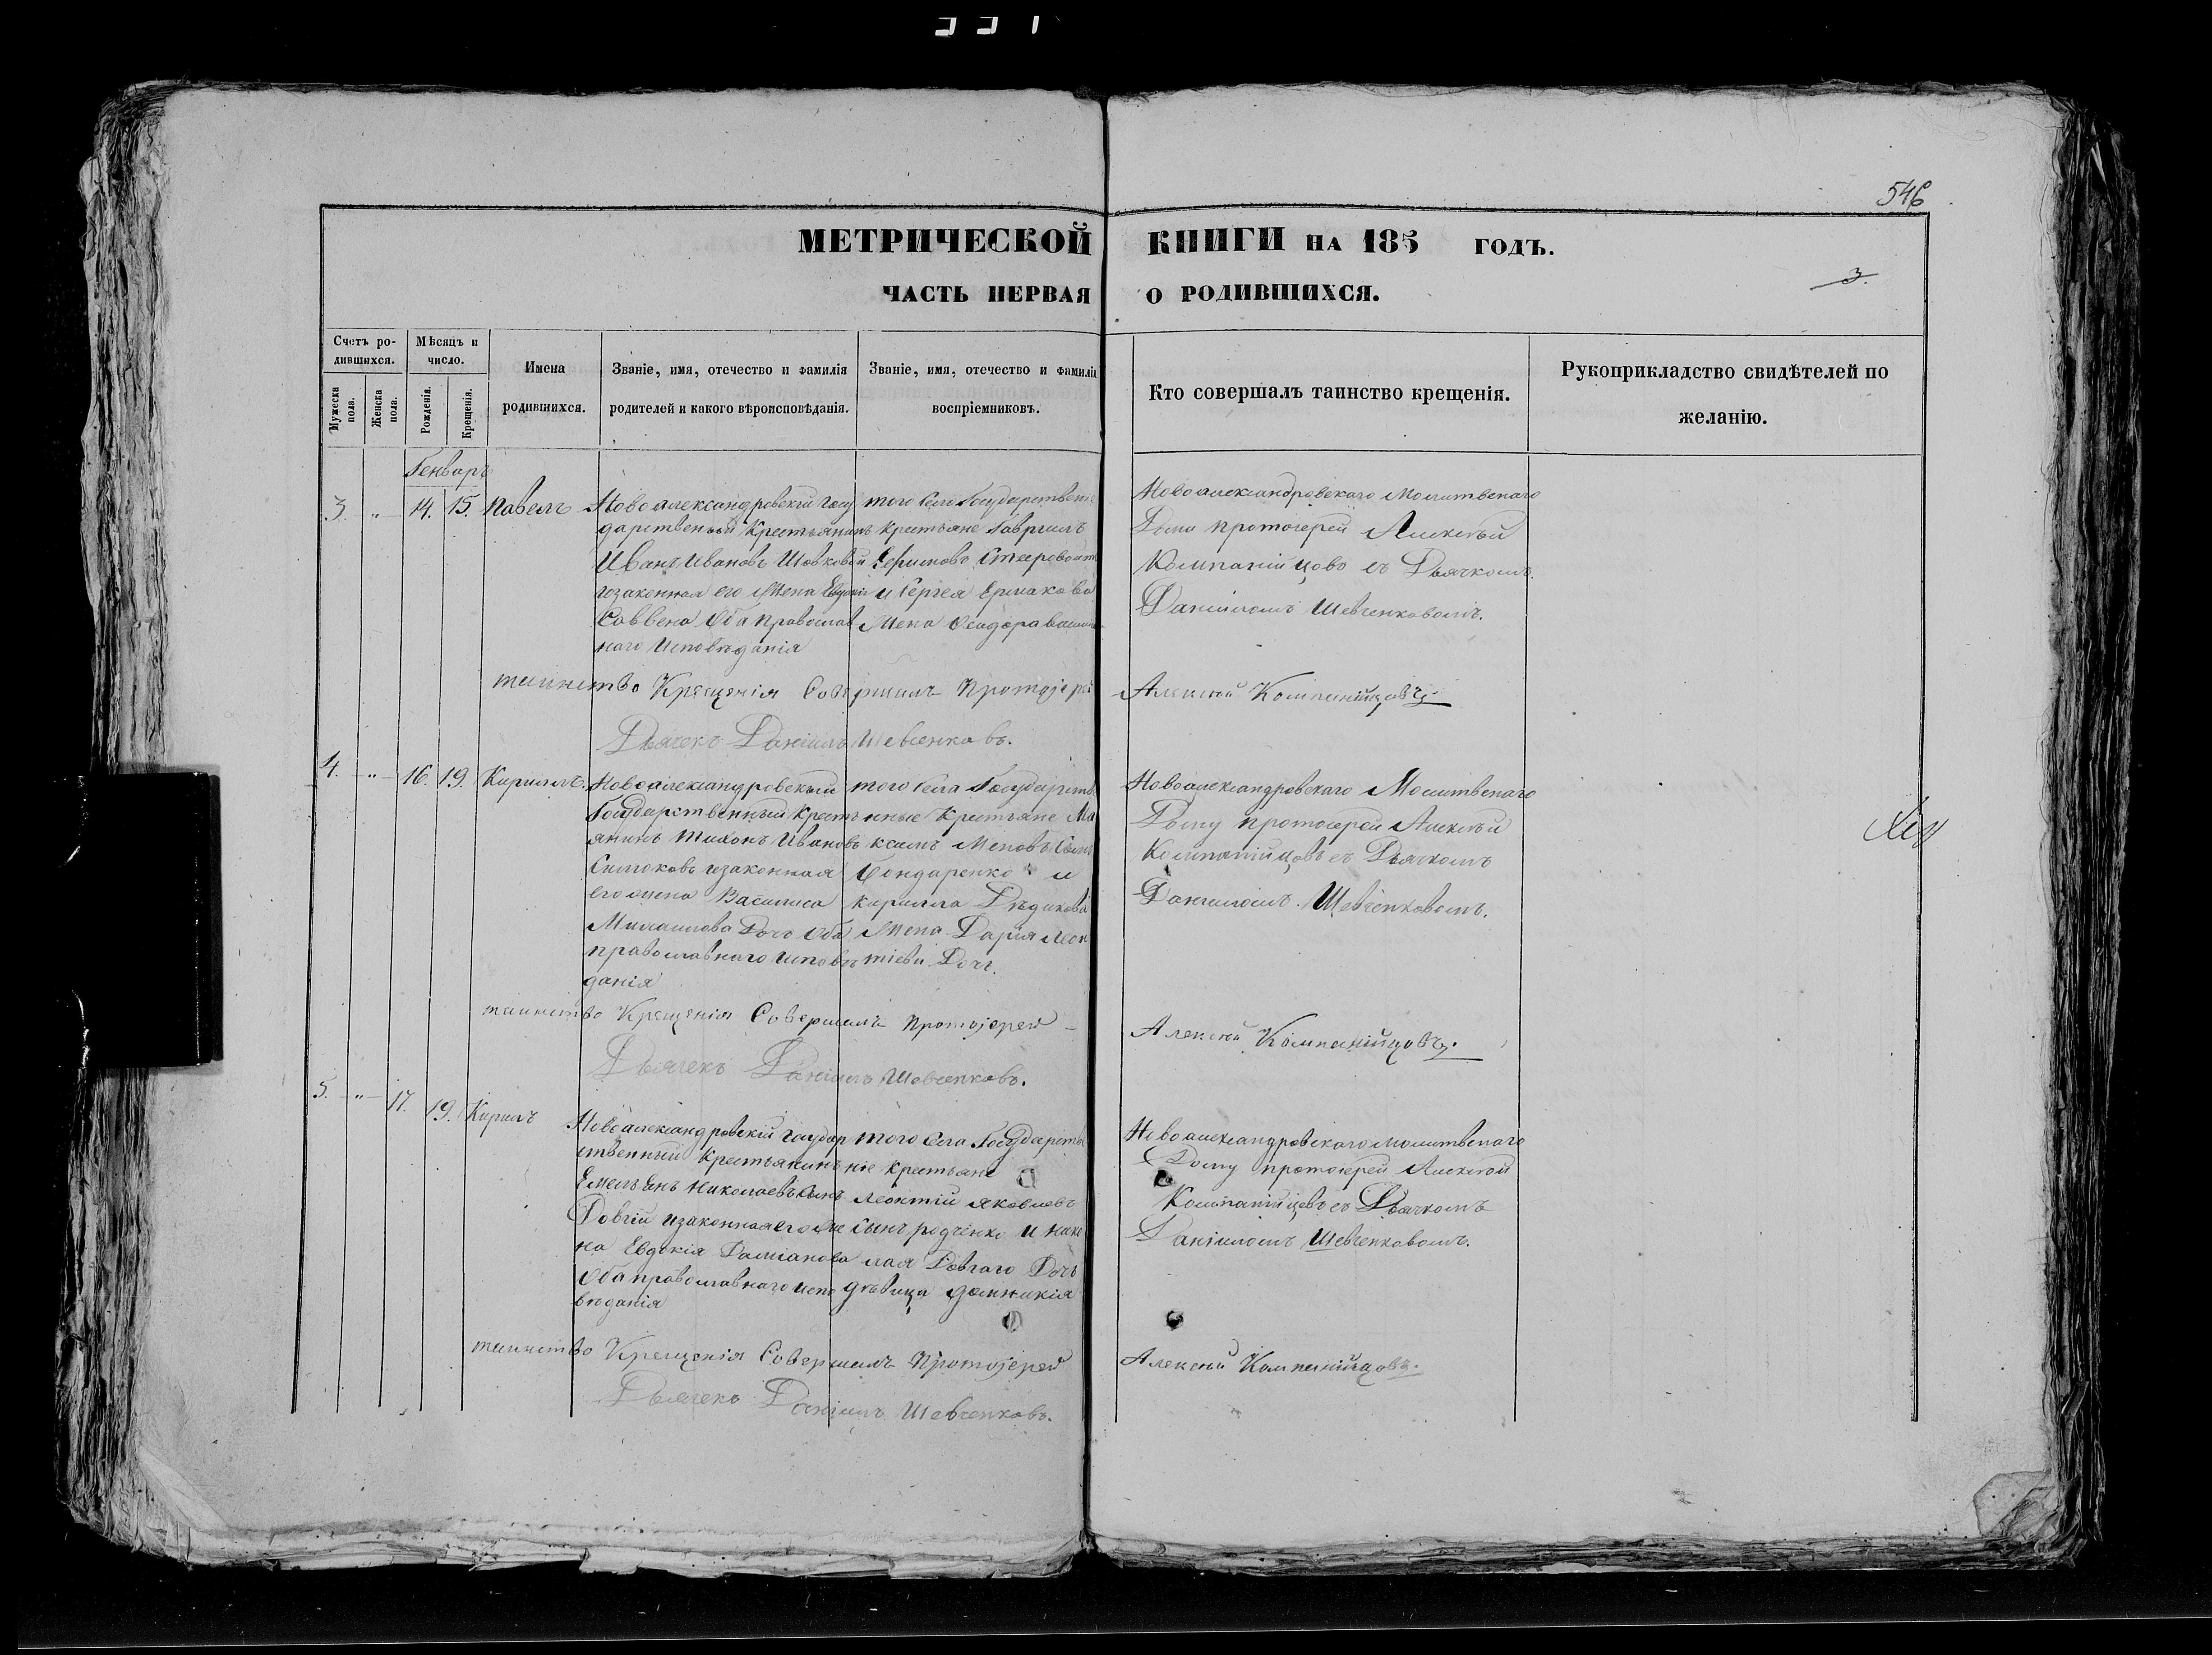 546
МЕТРИЧЕСКОЙ КНИГИ НА 185 ГОДЪ.
3.
ЧАСТЬ ПЕРВАЯ О РОДИВШИХСЯ.
Счетъ ро-
дившихся.
Мужеска
пола.
Женска
пола.
Мѣсяцъ и
число.
Рожденія.
Крещенія.
Имена
родившихся.
Званіе, имя, отечество и фамилія
родителей и какого вѣроисповѣданія.
Званіе, имя, отечество и фамилія
воспріемниковъ.
Кто совершалъ таинство крещенія.
Рукоприкладство свидѣтелей по
желанію.
Генварь
3. „ 14. 15. Павелъ
Новоалександровскій госу
дарственный Крестьянинъ
Иванъ Ивановъ Шовковой
изаконная его Жена Евдокія
Саввена Оба православ
наго Исповѣданія
того Села Государствен
крестьяне Гавріилъ
и Сергея Ермакова
Жена Феодора
Новоалександровскаго Молитвенаго
Дома протоіерей Алексѣй
Компанійцовъ съ Дьячкомъ
Даніиломъ Шевченковомъ.
таинство Крещенія Совершилъ Протоіерей Алексѣй Компанійцовъ.
Дьячекъ Даніилъ Шевченковъ.
4. „ 16. 19. Кириллъ.
Новоалександровскый
Государственный Кресть
янинъ Тихонъ Ивановъ
Симоковъ изаконная
его жена Василиса
Михаилова Дочь Оба
православнаго исповѣ
данія
того Села Государств
енные Крестьяне Ма
ксимъ
Бондаренко и
Кирилла Дѣдикова
Жена Дарія Леон
тіева Дочь.
Новоалександровскаго Молитвенаго
Дому протоіерей Алексѣй
Компанійцовъ съ Дьячкомъ
Даніиломъ Шевченковомъ.
таинство Крещенія Совершилъ Протоіерей Алексѣй Компанійцовъ.
Дьячекъ Даніилъ Шевченковъ.
5. „ 17. 19. Кирилъ
Новоалександровскій государ
ственный Крестьянинъ
Емельянъ Николаевъ Сынъ
Довгій изаконная его Же
на Евдокія Даміанова
Оба православнаго испо
вѣданія
того Села Государстве
ніе крестьяне
Леонтій Яковлевъ
Сынъ родченко и Нико
лая Довгаго Дочь
дѣвица Домникія
Новоалександровскаго молитвенаго
Дому протоіерей Алексѣй
Компанійцовъ съ Дьячкомъ
Даніиломъ Шевченковомъ.
таинство Крещенія Совершилъ Протоіерей Алексѣй Компанійцовъ.
Дьячекъ Даніилъ Шевченковъ.